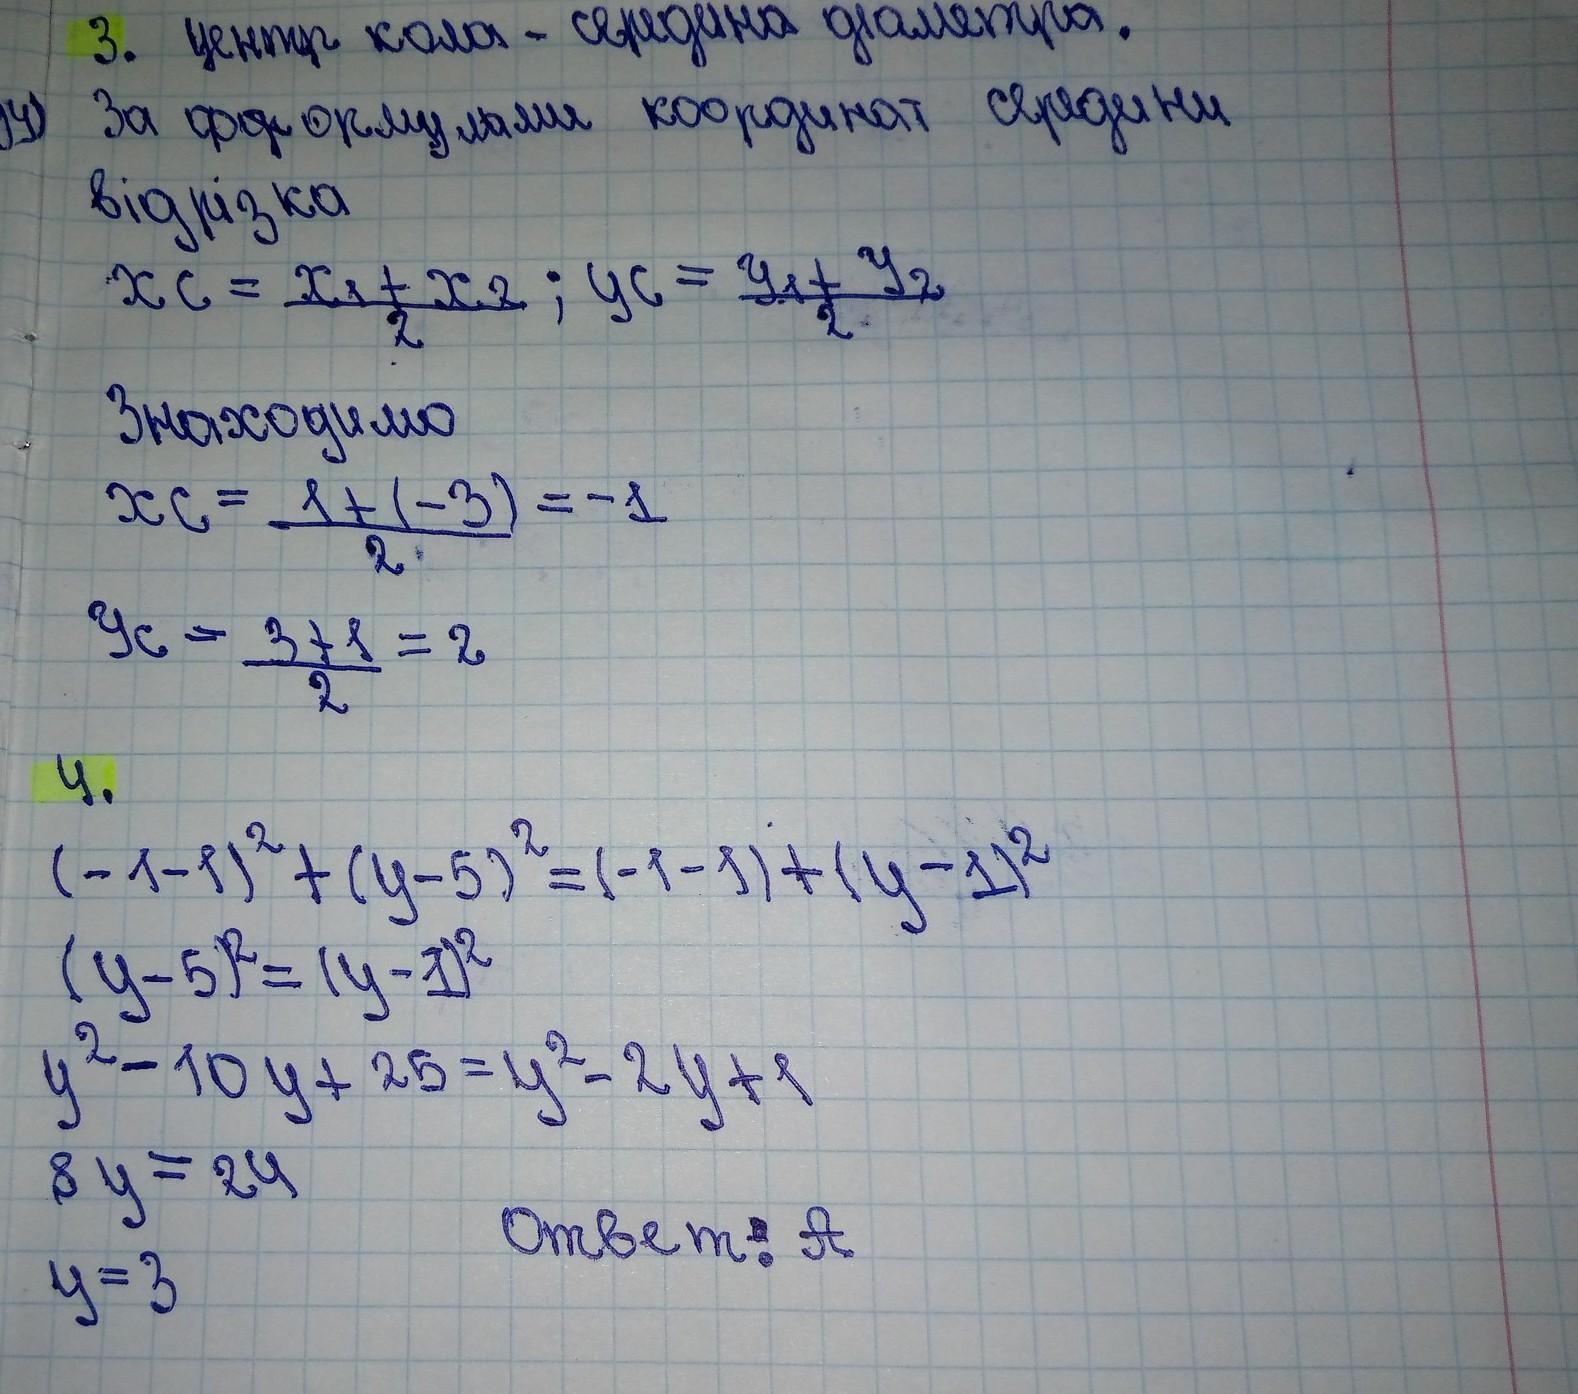 3. центр кола - середина діаметра.
За формулами координат середини
відрізка
xc = x1 + x2 / 2 ; yc = y1 + y2 / 2
Знаходимо
xc = 1 + (-3) / 2 = -1
yc = 3+1 / 2 = 2
4.
(-1-1)² + (y-5)² = (-1-1) + (y-1)²
(y-5)² = (y-1)²
y² - 10y + 25 = y² - 2y + 1
8y = 24
Ответ: А
y = 3